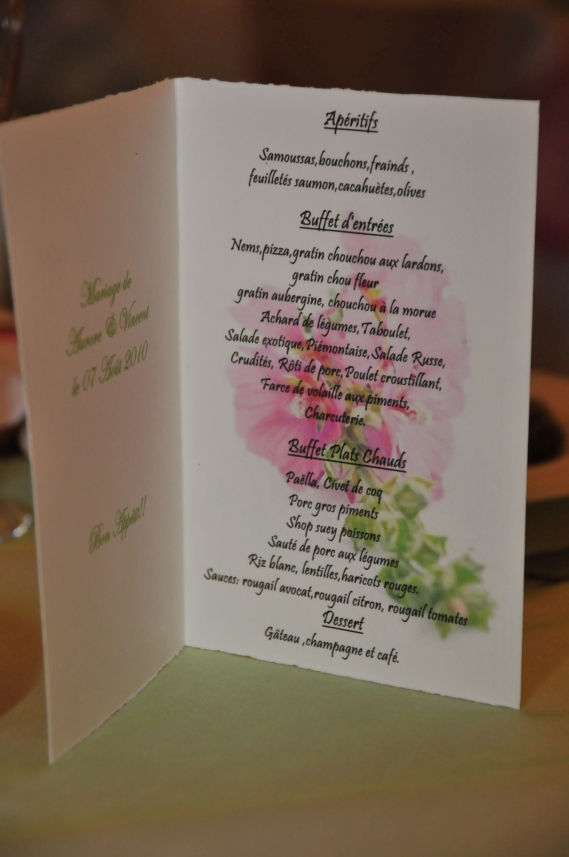 Mariage de
Aurore & Vincent
le 07 Août 2010
Bon Appétit!!
Apéritifs
Samoussas,bouchons,frainds ,
feuilletés saumon,cacahuètes,olives
Buffet d'entrées
Nems,pizza,gratin chouchou aux lardons,
gratin chou fleur
gratin aubergine, chouchou à la morue
Achard de légumes,Taboulet,
Salade exotique,Piémontaise,Salade Russe,
Crudités, Rôti de porc,Poulet croustillant,
Farce de volaille aux piments,
Charcuterie.
Buffet Plats Chauds
Paëlla, Civet de coq
Porc gros piments
Shop suey poissons
Sauté de porc aux légumes
Riz blanc, lentilles,haricots rouges.
Sauces: rougail avocat,rougail citron, rougail tomates
Dessert
Gâteau ,champagne et café.